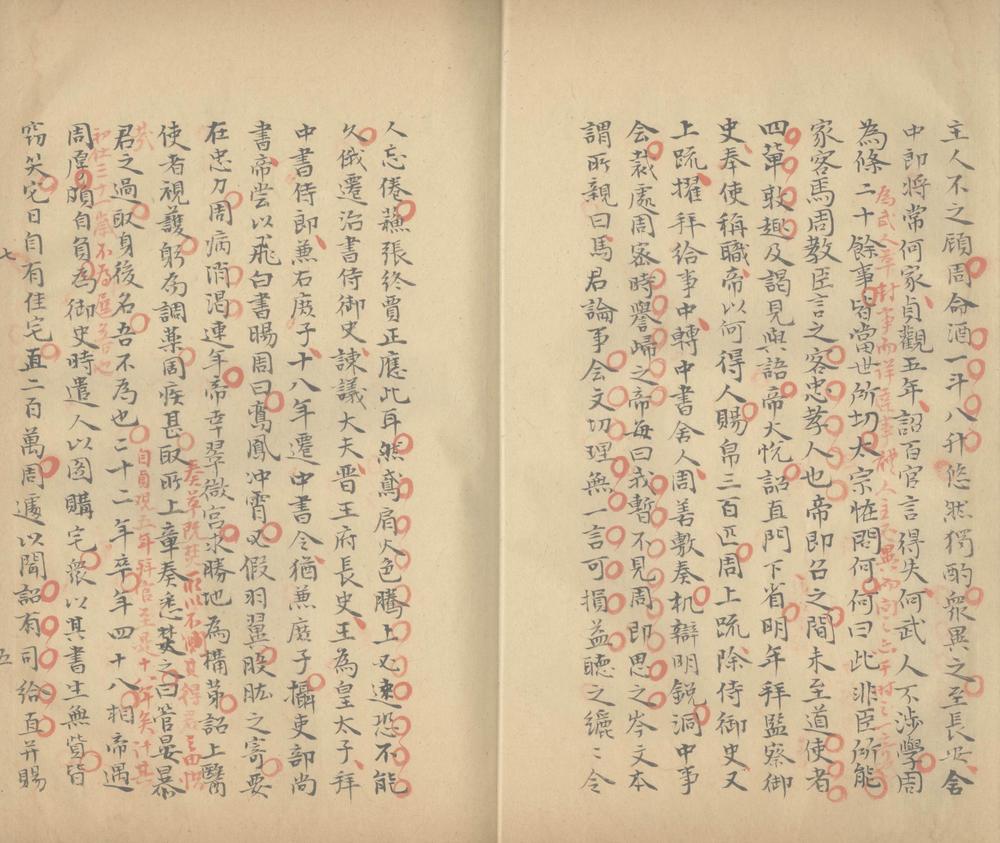 主人不之顧周命酒一斗八升悠然獨酌衆異之至長安舍
中即將常何家貞觀五年詔百官言得失何武人不涉學周
為條二十餘事皆當世所切太宗怪問何何曰此非臣所能
家客馬周教臣言之客忠孝人也帝即召之間未至遣使者
四輩敦趣及謁見與語帝大悅詔直門下省明年拜監察御
史奉使稱職帝以何得人賜帛三百匹周上疏除侍御史又
上疏擢拜給事中轉中書舍人周善敷奏机辯明銳洞中事
会裁處周密時譽歸之帝每曰我暫不見周即思之岑文本
謂所親曰馬君論事会文切理無一言可損益聽之纚〻令
人忘倦蘇張終賈正應此耳然鳶肩火色騰上必速恐不能
久俄遷治書侍御史諫議大夫晋王府長史王為皇太子拜
中書侍郎兼右庶子十八年遷中書令猶兼庶子攝吏部尚
書帝嘗以飛白書賜周曰鸞鳳冲霄必假羽翼股肱之寄要
在忠力周病消渴連年帝幸翠微宮求勝地為搆第詔上醫
使者視護躬為調藥周疾甚取所上章奏悉焚之曰管晏暴
君之過取身後名吾不為也二十二年卒年四十八相帝遇
周厚頗自負為御史時遣人以圖購宅衆以其書生無貲皆
窃笑宅日自有佳宅直二百萬周遽以聞詔有司給直并賜
自貞观五年拜官至是十八年矣計其
初仕三十一歲不為
七
五